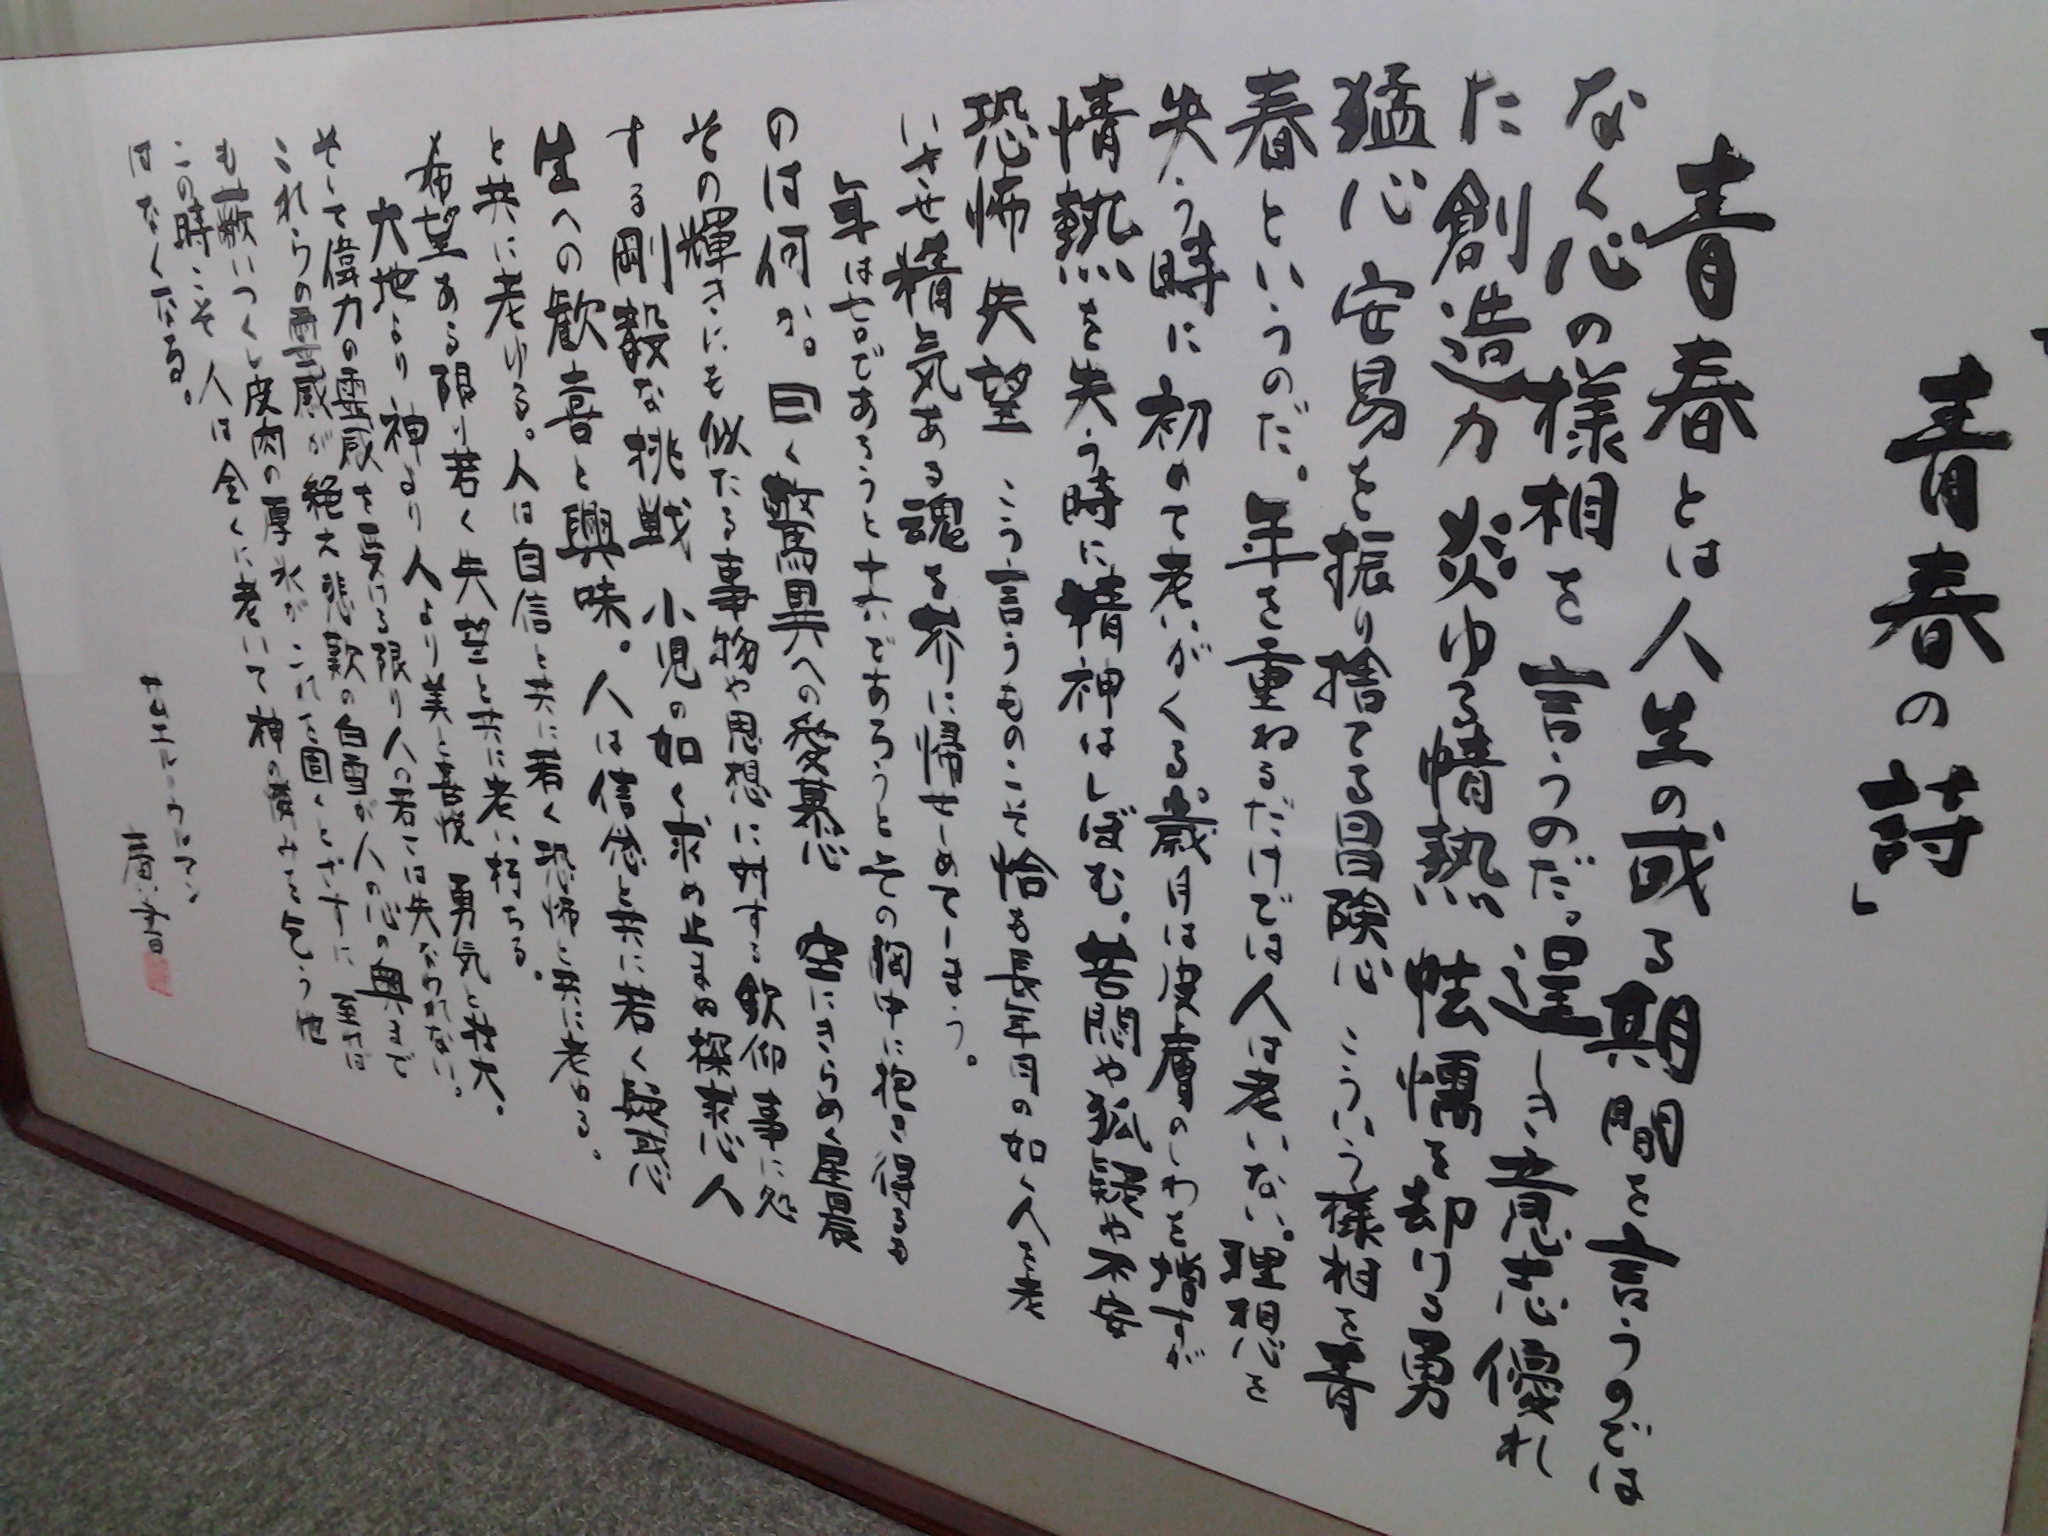 「青春の詩」
青春とは人生の或る期間を言うのでは
なく心の様相を言うのだ。逞しき意志優れ
た創造力炎ゆる情熱怯懦を却ける勇
猛心安易を振り捨てる冒険心こういう様相を青
春というのだ。年を重ねるだけでは人は老いない。理想を
失う時に初めて老いがくる。歳月は皮膚のしわを増すが
情熱を失う時に精神はしぼむ。苦悶や狐疑や不安
恐怖失望こう言うものこそ恰も長年月の如く人を老
いさせ精気ある魂を芥に帰せしめてしまう。
年は七〇であろうと十六であろうとその胸中に抱き得るも
のは何か。曰く驚異への愛慕心空にきらめく星晨
その輝きにも似たる事物や思想に対する欽仰事に処
する剛毅な挑戦小児の如く求め止まぬ探求心人
生への歓喜と興味。人は信念と共に若く疑惑
と共に老ゆる。人は自信と共に若く恐怖と共に老ゆる。
希望ある限り若く失望と共に老い朽ちる。
大地より神より人より美と喜悦勇気と壮大。
そして偉力の霊感を受ける限り人の若さは失なわれない。
これらの霊感が絶え悲歎の白雪が人の心の奥まで
も蔽いつくし皮肉の厚氷がこれを固くとざすに至れば
この時こそ人は全くに老いて神の憐みを乞う他
はなくなる。
サムエル・ウルマン